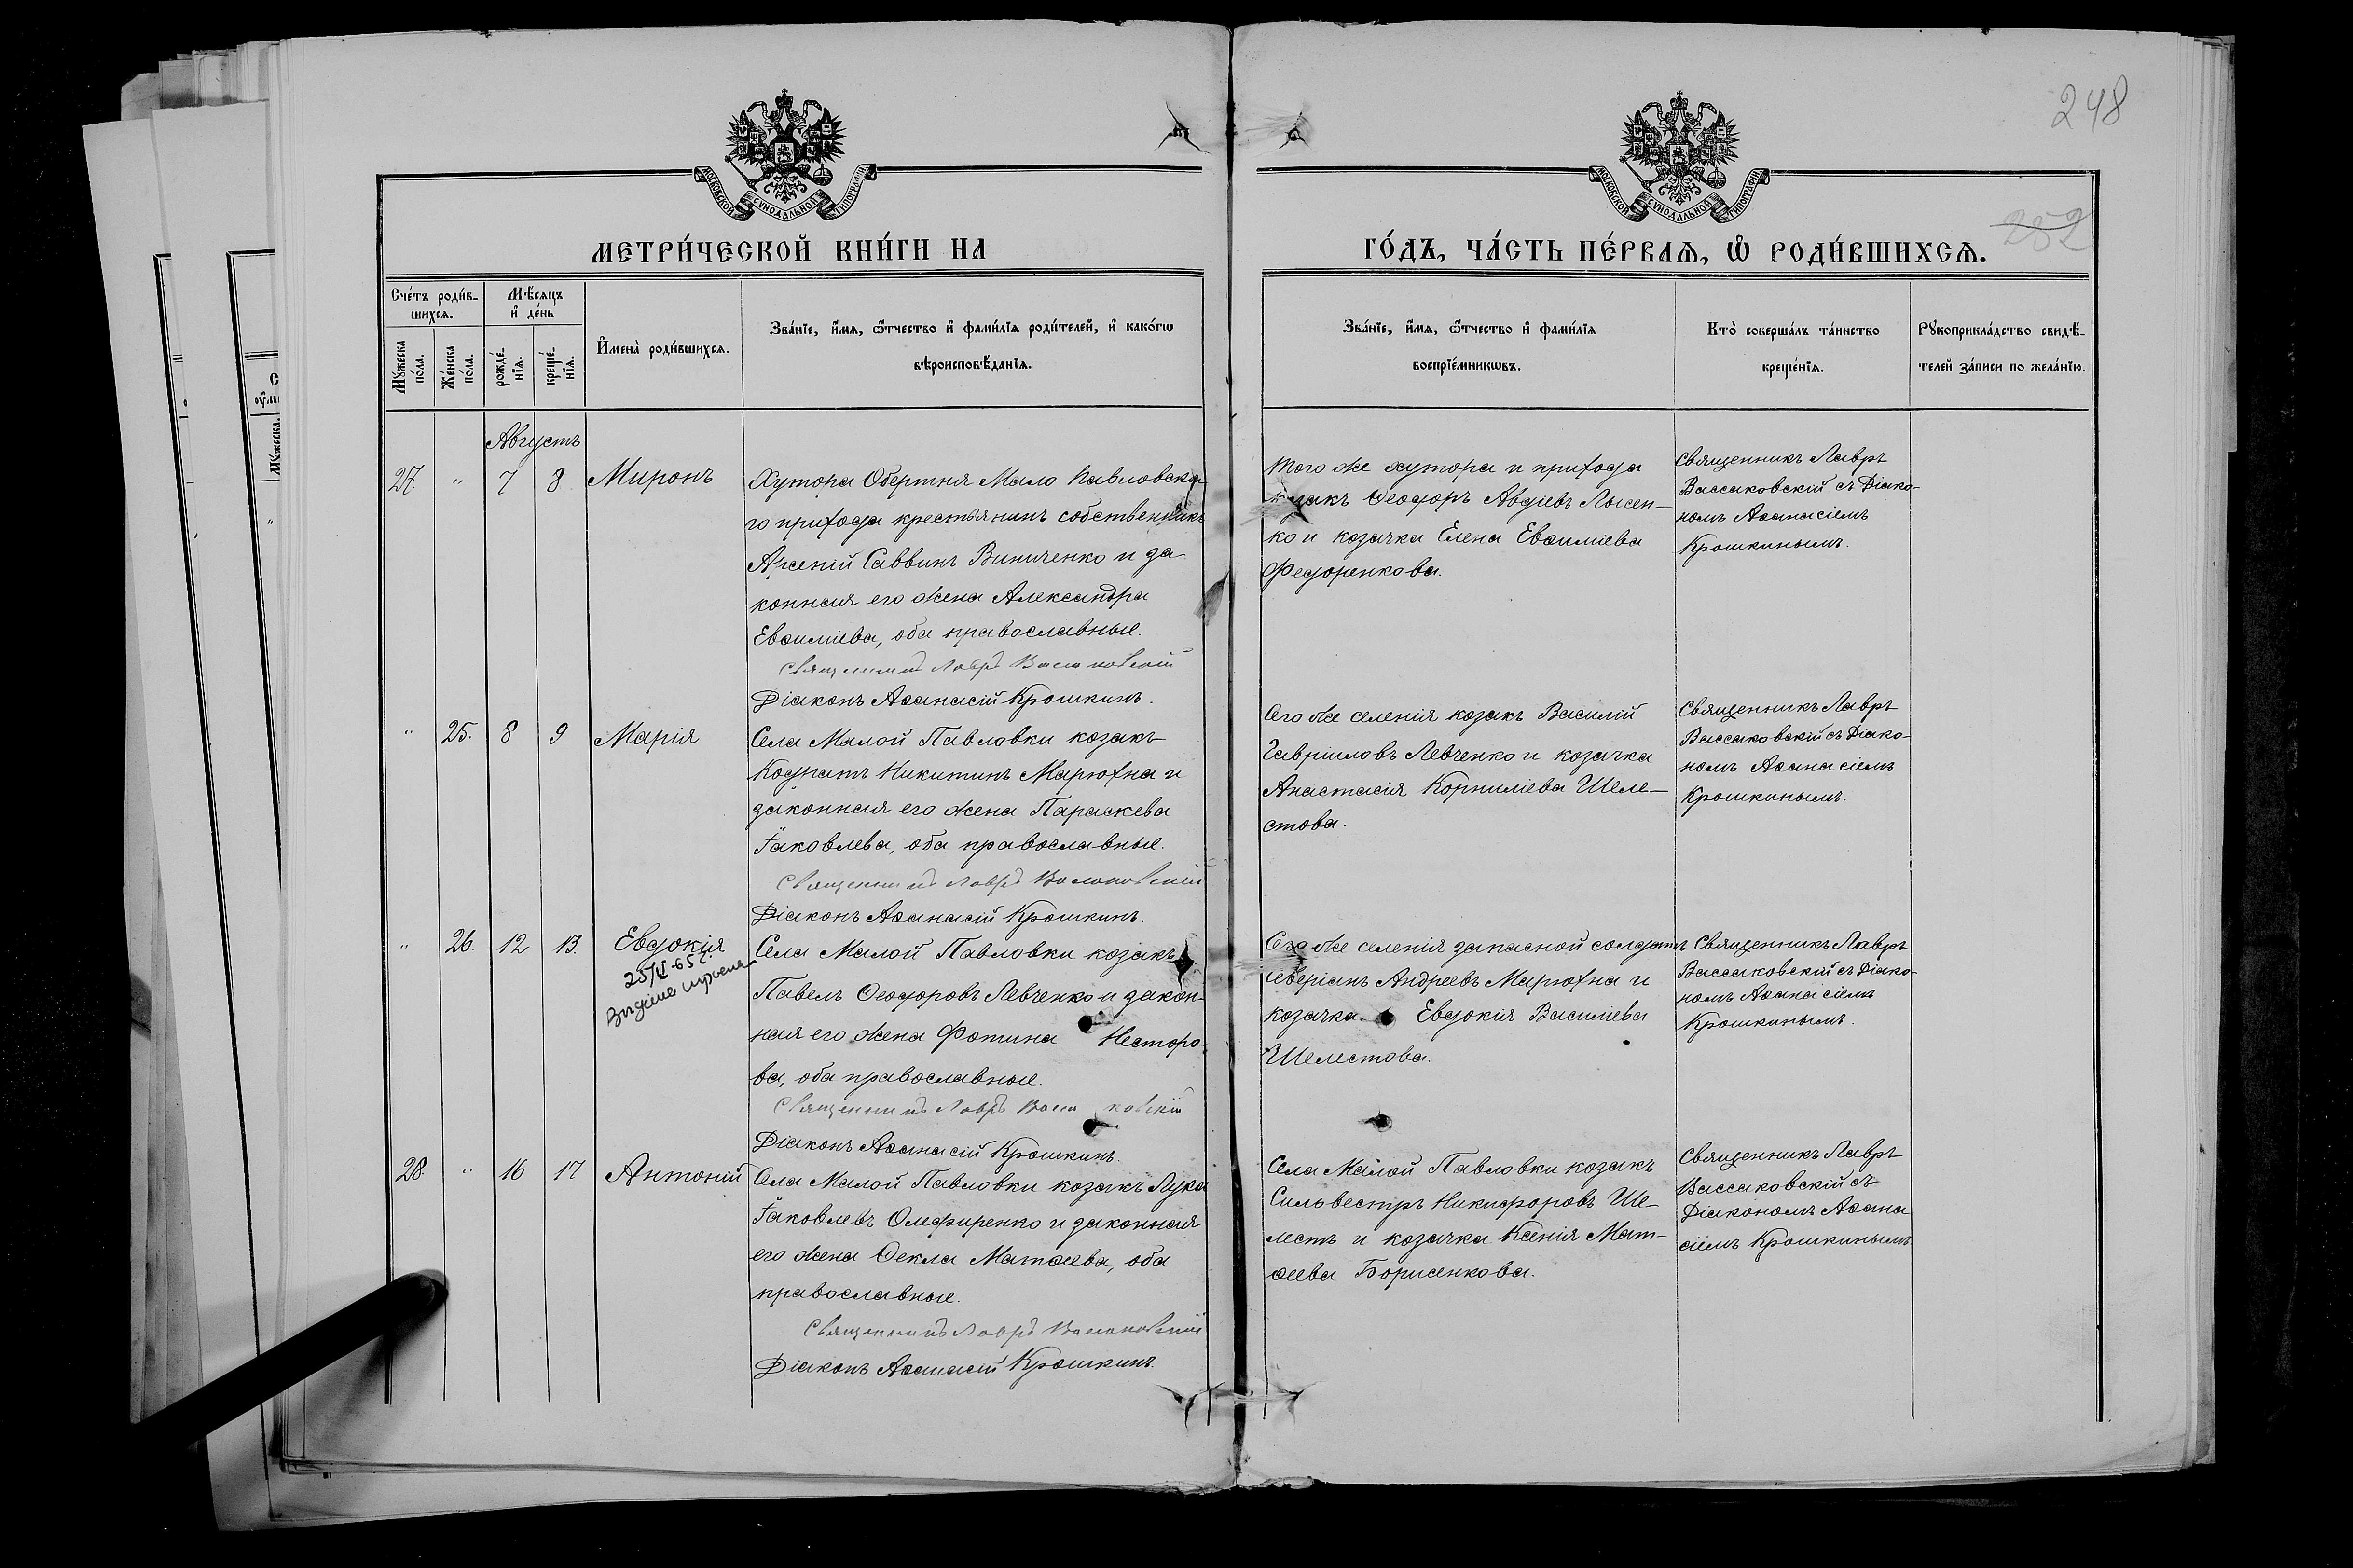 248
252
МОСКОВСКОЙ СУНОДАЛЬНОЙ ТИПОГРАФІИ
МОСКОВСКОЙ СУНОДАЛЬНОЙ ТИПОГРАФІИ
МЕТРИ́ЧЕСКОЙ КНИ́ГИ НА
ГО́ДЪ, ЧА́СТЬ ПЕ́РВАѦ, Ѡ҆ РОДИ́ВШИХСѦ.
Сче́тъ роди́в-
шихсѧ.
Мꙋ́жеска
по́ла.
Же́нска
по́ла.
Мѣ́сѧцъ
и҆ де́нь
рожде́-
нїѧ.
креще́-
нїѧ.
И҆мена̀ роди́вшихсѧ.
Зва́нїе, и҆́мѧ, ѻ҆́тчество и҆ фами́лїѧ роди́телей, и҆ како́гѡ
вѣроисповѣ́данїѧ.
Зва́нїе, и҆́мѧ, ѻ҆́тчество и҆ фами́лїѧ
воспрїе́мникѡвъ.
Кто̀ соверша́лъ та́инство
креще́нїѧ.
Рꙋкоприкла́дство свидѣ́-
телей за́писи по жела́нїю.
Августъ
27. " 7 8 Миронъ
Хутора Обертня Мало Павловска-
го прихода крестьянинъ собственникъ
Арсеній Саввинъ Виниченко и за
конная его жена Александра
Евѳиміева, оба православные.
Священникъ Лавръ Вассаковскій
Діаконъ Аѳанасій Крошкинъ.
Того же хутора и прихода
козакъ Ѳеодоръ Авдіевъ Лысен-
ко и козачка Елена Евѳиміева
Федоренкова.
Священникъ Лавръ
Вассаковскій съ Діако-
номъ Аѳанасіемъ
Крошкинымъ.
" 25. 8 9 Марія
Села Малой Павловки козакъ
Кодратъ Никитинъ Марюхна и
законная его жена Параскева
Іаковлева, оба православные.
Священникъ Лавръ Вассаковскій
Діаконъ Аѳанасій Крошкинъ.
Сего же селенія козакъ Василій
Гавріиловъ Левченко и козачка
Анастасія Корниліева Шеле-
стова.
Священникъ Лавръ
Вассаковскій съ Діако-
номъ Аѳанасіемъ
Крошкинымъ.
" 26. 12 13. Евдокія
25/V-65 г.
Села Малой Павловки козакъ
Павелъ Ѳеодоровъ Левченко и закон-
ная его жена Фотина Несторо-
ва, оба православные.
Священникъ Лавръ Вассаковскій
Діаконъ Аѳанасій Крошкинъ.
Сего же селенія запасной солдатъ
Северіанъ Андреевъ Марюхна и
козачка Евдокія Василіева
Шелестова.
Священникъ Лавръ
Вассаковскій съ Діако-
номъ Аѳанасіемъ
Крошкинымъ.
28. " 16 17 Антоній
Села Малой Павловки козакъ Лука
Іаковлевъ Олефиренко и законная
его жена Ѳекла Матѳеева, оба
православные.
Священникъ Лавръ Вассаковскій
Діаконъ Аѳанасій Крошкинъ.
Села Малой Павловки козакъ
Сильвестръ Никифоровъ Ше-
лестъ и козачка Ксенія Мат-
ѳеева Борисенкова.
Священникъ Лавръ
Вассаковскій съ
Діакономъ Аѳана
сіемъ Крошкинымъ